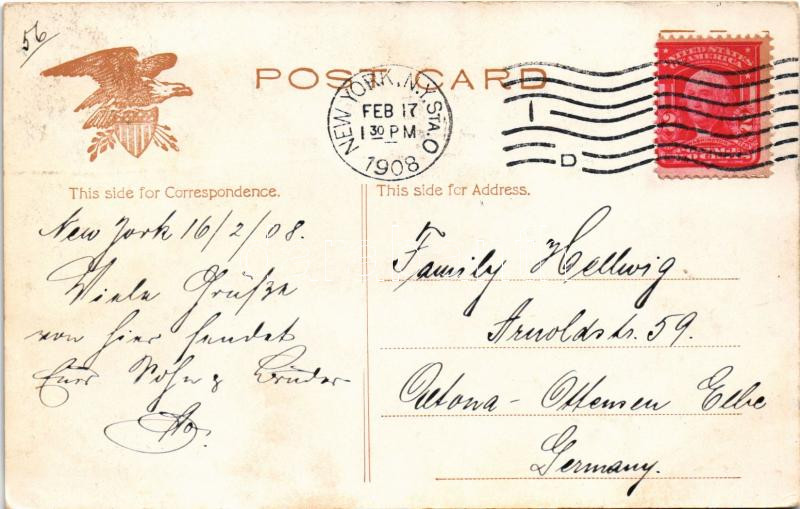 56
POST CARD
NEW YORK, N.Y. STA. O
FEB 17
1 30 PM
1908
D
UNITED STATES
OF AMERICA
2
This side for Correspondence.
This side for Address.
New York 16/2/08.
Viele Grüße
von hier sendet
Euer Sohn & Bruder
Family Hellwig
Arnoldstr. 59.
Altona - Ottensen Elbe
Germany.